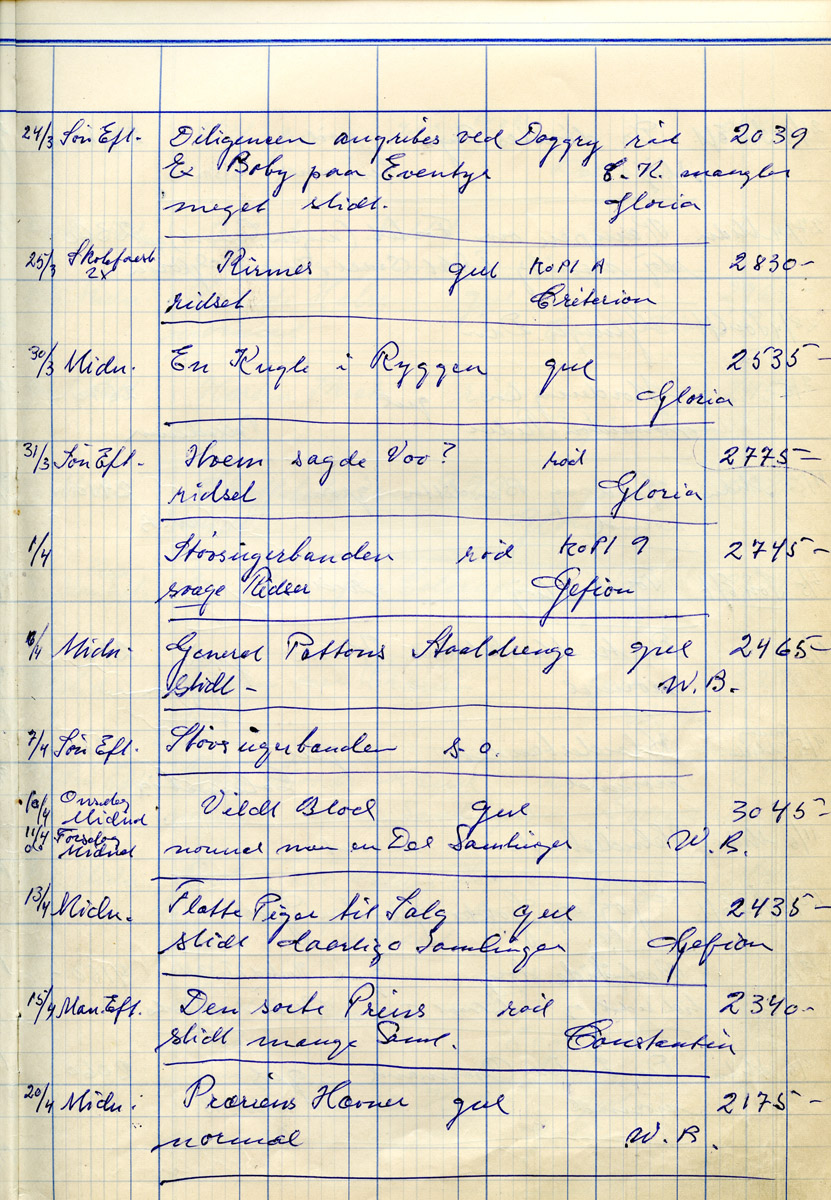 24/3 Søn Eft. Diligencen angribes ved Daggry rød 2039
Ex Boby paa Eventyr E. K. mangler
meget slidt. Gloria
25/3 Skoleforest 2x Kirmes gul KOPI A 2830-
ridset Criterion
30/3 Midn. En Kugle i Ryggen gul 2535-
Gloria
31/3 Søn Eft. Hvem sagde Vov? rød 2775-
ridset Gloria
1/4 Støvsugerbanden rød KOPI 9 2745-
svage Ridser Gefion
6/4 Midn. General Pattons Staaldrenge gul 2465-
slidt - W.B.
7/4 Søn Eft. Støvsugerbanden s.o.
10/4 Onsdag Midnat Vildt Blod gul 3045-
11/4 Torsdag Midnat normal men en Del Samlinger W.B.
13/4 Midn. Flotte Piger til Salg gul 2435-
slidt daarlige Samlinger Gefion
15/4 Man. Eft. Den sorte Prins rød 2340-
slidt mange Saml. Constantin
20/4 Midn. Præriens Hævner gul 2175-
normal W.B.